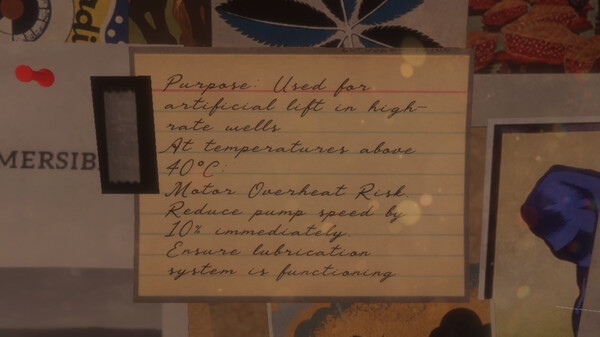 rdi
MERSIB
Purpose: Used for
artificial lift in high-
rate wells
At temperatures above
40°C:
Motor Overheat Risk.
Reduce pump speed by
10% immediately.
Ensure lubrication
system is functioning